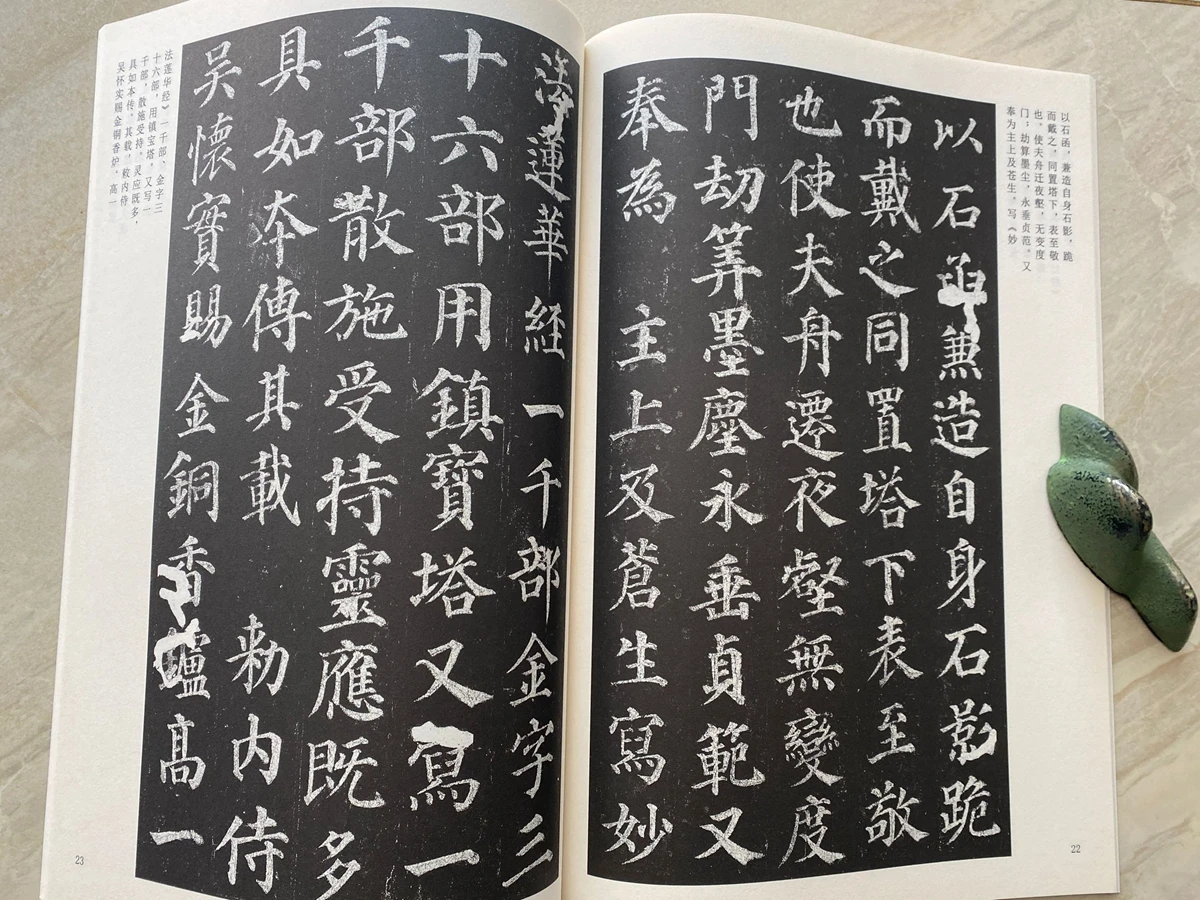 以石函兼造自身石影跪
而戴之同置塔下表至敬
也使夫舟遷夜壑無變度
門劫筭墨塵永垂貞範又
奉為主上及蒼生寫妙
以石函，兼造自身石影，跪
而戴之，同置塔下，表至敬
也。使夫舟迁夜壑，无变度
门；劫算墨尘，永垂贞范。又
奉为主上及苍生，写《妙
22
法蓮華經一千部金字三
十六部用鎮寶塔又寫一
千部散施受持靈應既多
具如本傳其載敕內侍
吳懷實賜金銅香鑪高一
法莲华经》一千部、金字三
十六部，用镇宝塔。又写一
千部，散施受持。灵应既多，
具如本传。其载，敕内侍
吴怀实赐金铜香炉，高一
23